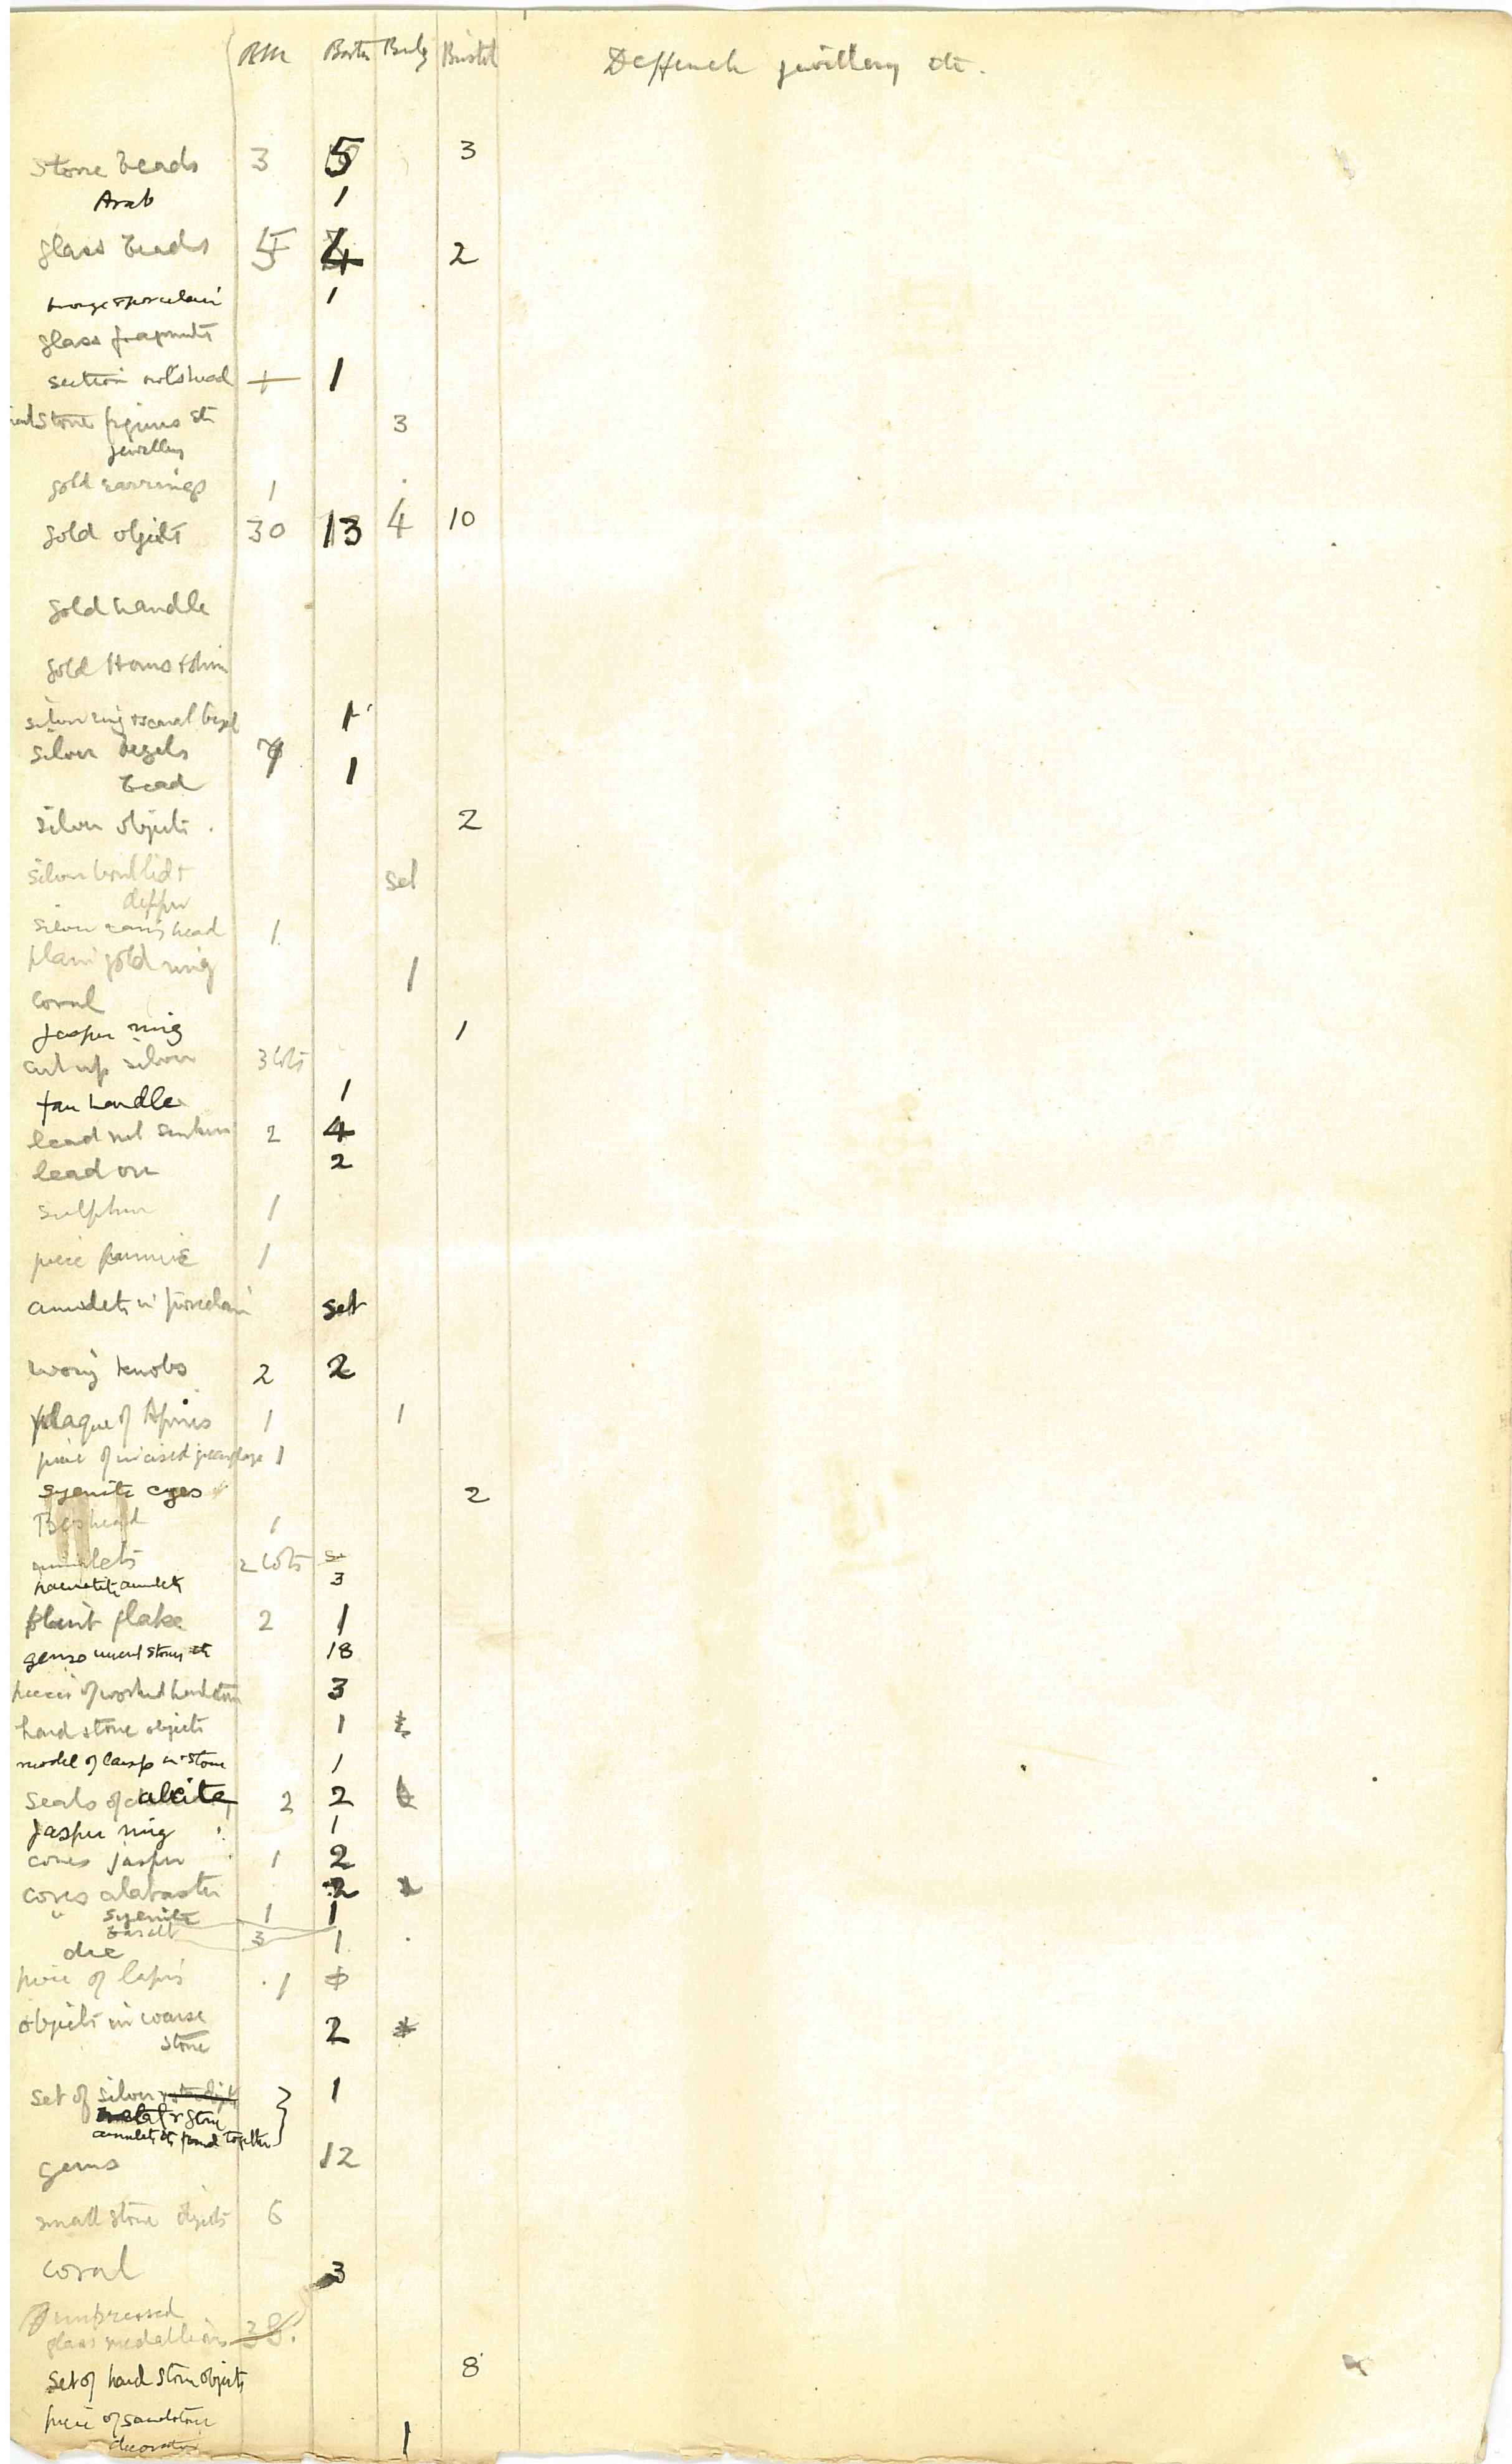 BM Boston Bulg Bristol Deffeneh jewillery etc.
Stone beads 3 5 3
Arab 1
glass beads 5 4 2
bronze & porcelain 1
glass fragments
section head 1 1
Stone figures etc 3
jewellery
gold earrings 1
gold objects 30 13 4 10
gold handle
gold Horus &
silver ring & scarab bezel 1
silver bezels 7
bead 1
silver objects. 2
silver bowl lid & set
dipper
silver ram's head 1
plain gold ring 1
coral
Jasper ring 1
cut up silver 3 lots
fan handle 1
lead net sinkers 2 4
lead ore 2
sulphur 1
piece pumice 1
amulets in porcelain set
ivory knobs 2 2
plaque of Apries 1 1
piece of incised 1
syenite eyes 2
Bes head 1
amulets 2 lots
haematite amulets 3
flint flake 2 1
gems uncut stones etc 18
pieces of worked hard stone 3
hard stone objects 1
model of lamp in stone 1
seals of calcite 2 2
Jasper ring 1
cones jasper 1 2
cones alabaster 2
" syenite 1 1
basalt 3
die 1
piece of lapis 1
objects in coarse 2
stone
set of silver 1
& stone
amulets etc found together
gems 12
small stone objects 6
coral 3
impressed
glass medallions 38.
Set of hard stone objects 8
piece of sandstone 1
decoration